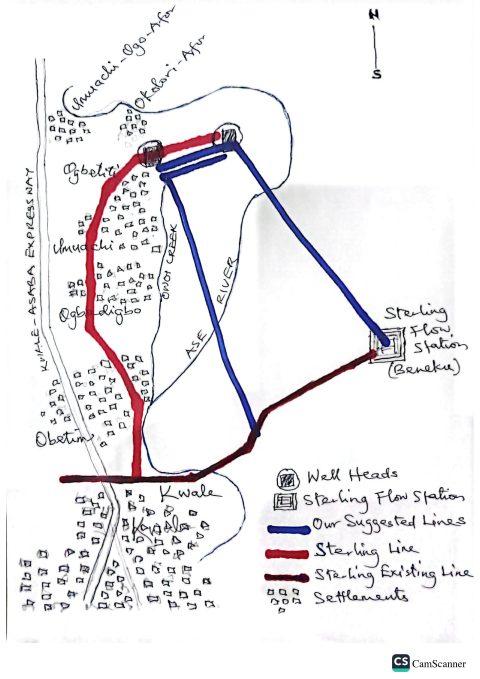 N
S
Umuachi-Ogo-Afor
Okolori-Afor
Ogbetiti
Umuachi
Ogbadigbo
KWALE-ASABA EXPRESSWAY
ONOI CREEK
ASE RIVER
Sterling
Flow
Station
(Beneku)
Obetim
Kwale
Well Heads
Sterling Flow Station
Our Suggested Lines
Sterling Line
Sterling Existing Line
Settlements
CS CamScanner